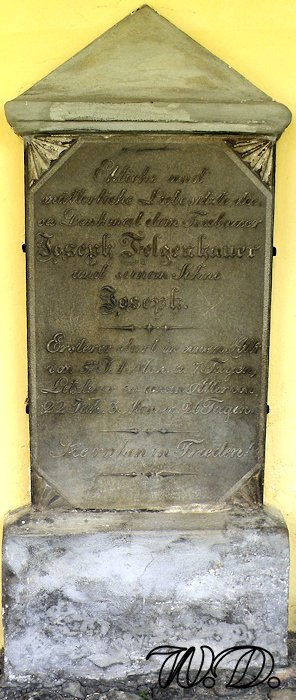 Eheliche und
mütterliche Liebe setzte dies
Denkmal dem
Joseph Felgenhauer
und seinem Sohne
Joseph.
Ersterer starb im
von 7 Tagen,
Letzterer in einem Alter von
22 Jah. 3 Mon. u. 26 Tagen.
Sie ruhen in Frieden!
W. D.